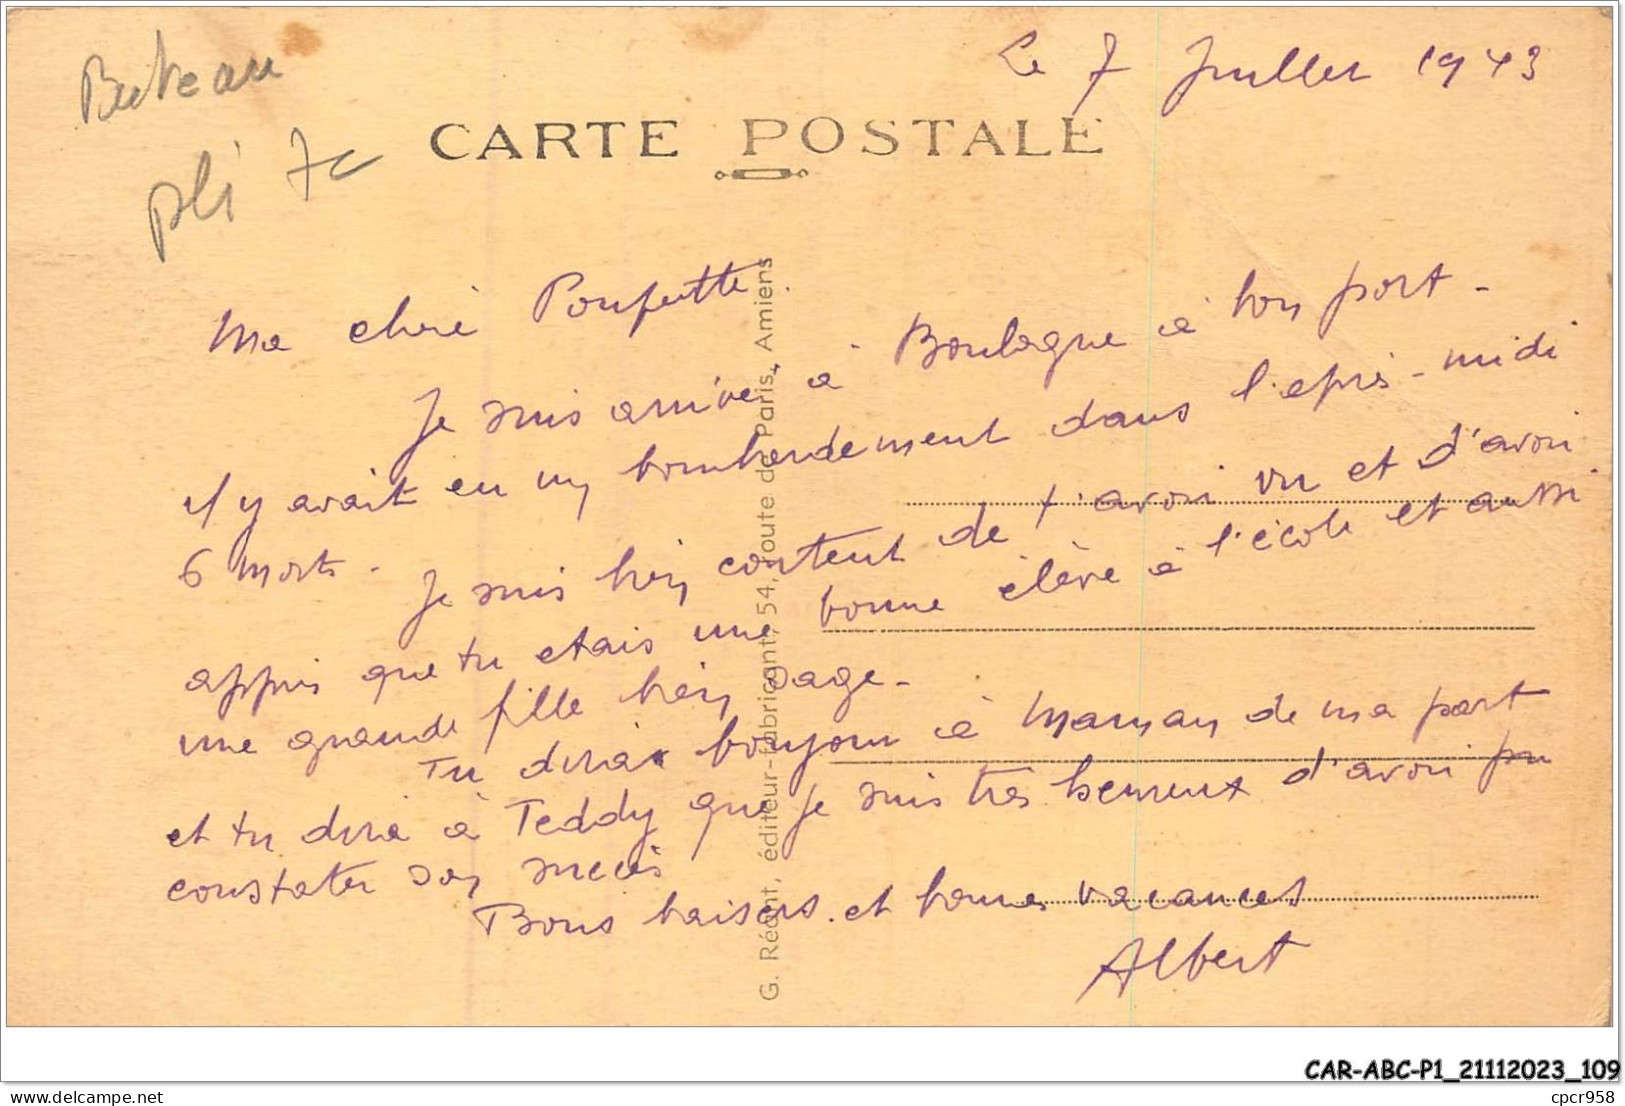 Le 7 Juillet 1943
Bateau
pli 7c
CARTE POSTALE
Ma chère Poupette
Je suis arrivé à Boulogne à bon port -
il y avait eu un bombardement dans l'après-midi
6 morts. Je suis bien content de t'avoir vu et d'avoir
appris que tu etais une bonne élève à l'école et aussi
une grande fille bien sage -
Tu diras bonjour à Maman de ma part
et tu diras à Teddy que je suis très heureux d'avoir pu
constater son succès
Bons baisers et bonnes vacances
Albert
G. Réant, éditeur-fabricant, 54, route de Paris, Amiens
CAR-ABC-P1_21112023_109
delcampe.net
cpcr958